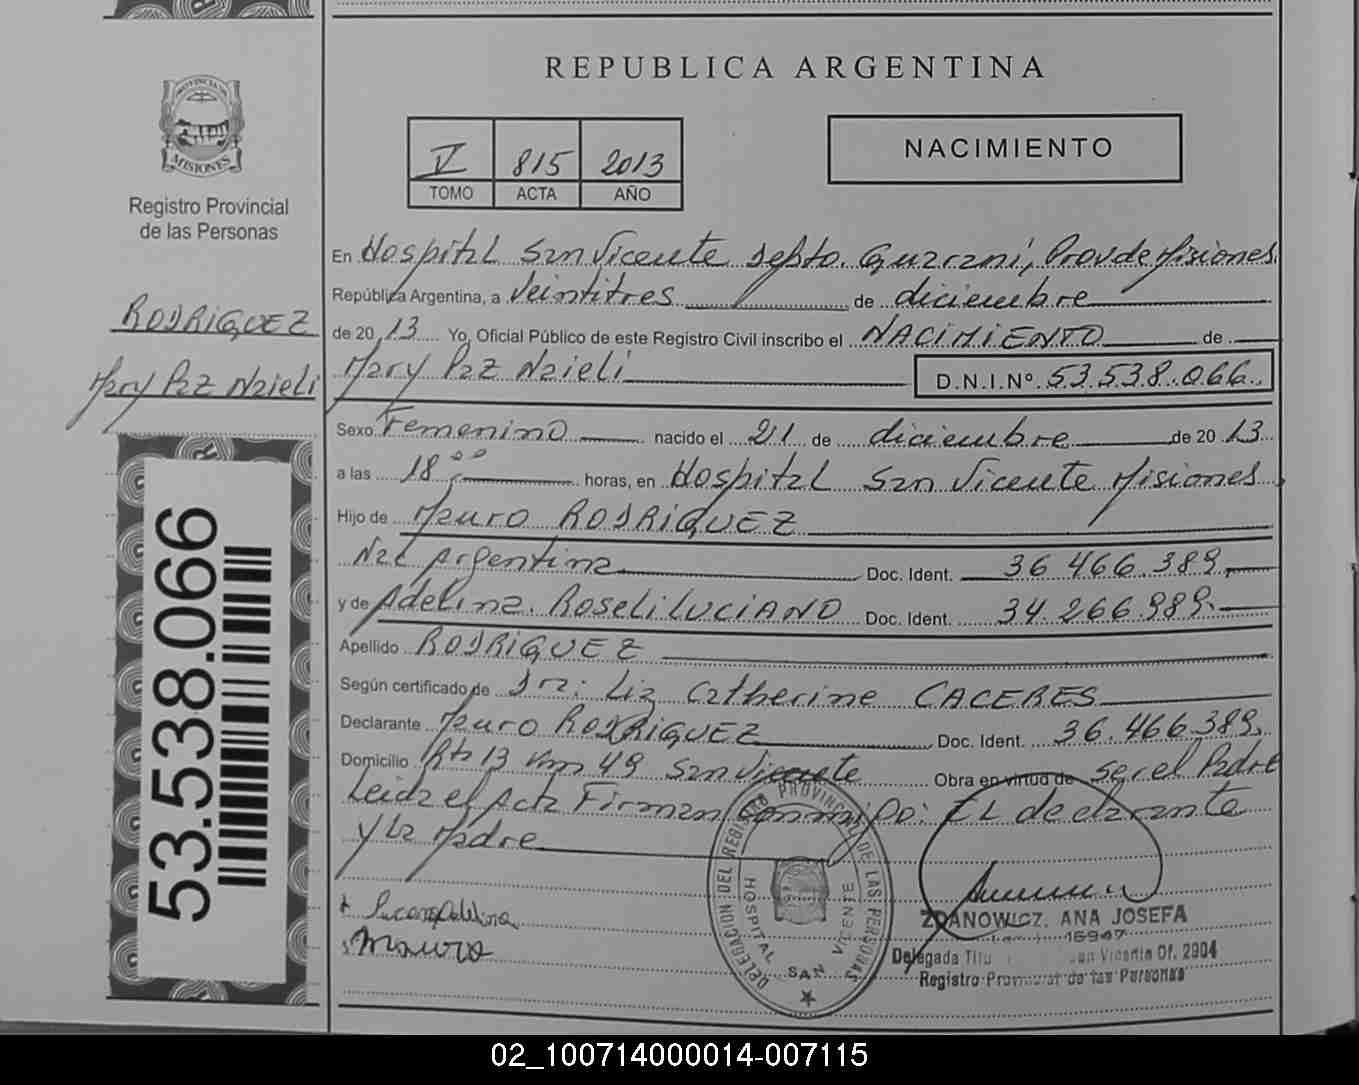 REPUBLICA ARGENTINA
PROVINCIA DE
MISIONES
Registro Provincial
de las Personas
V 815 2013
TOMO ACTA AÑO
NACIMIENTO
En Hospital San Vicente Depto. Guarani, Prov de Misiones
República Argentina, a Veintitres de diciembre
de 20 13 Yo, Oficial Público de este Registro Civil inscribo el NACIMIENTO de
RODRIGUEZ
Mary Paz Naieli
Mary Paz Naieli D.N.I.Nº 53.538.066
Sexo Femenino nacido el 21 de diciembre de 20 13
a las 18 ºº horas, en Hospital San Vicente Misiones
Hijo de Mauro RODRIGUEZ
Nac Argentina Doc. Ident. 36.466.389
y de Adelina Roseli LUCIANO Doc. Ident. 34.266.989
Apellido RODRIGUEZ
Según certificado de Dra: Liz Catherine CACERES
Declarante Mauro RODRIGUEZ Doc. Ident. 36.466.389
Domicilio Rta 13 Km 49 San Vicente Obra en virtud de ser el Padre
Leida el Acta Firman conmigo: EL declarante
y La Madre
53.538.066
DELEGACION DEL REGISTRO PROVINCIAL DE LAS PERSONAS
HOSPITAL SAN VICENTE
Mauro
ZDANOWICZ, ANA JOSEFA
16947
Delegada Titu San Vicente Of. 2904
Registro Provincial de las Personas
02_100714000014-007115